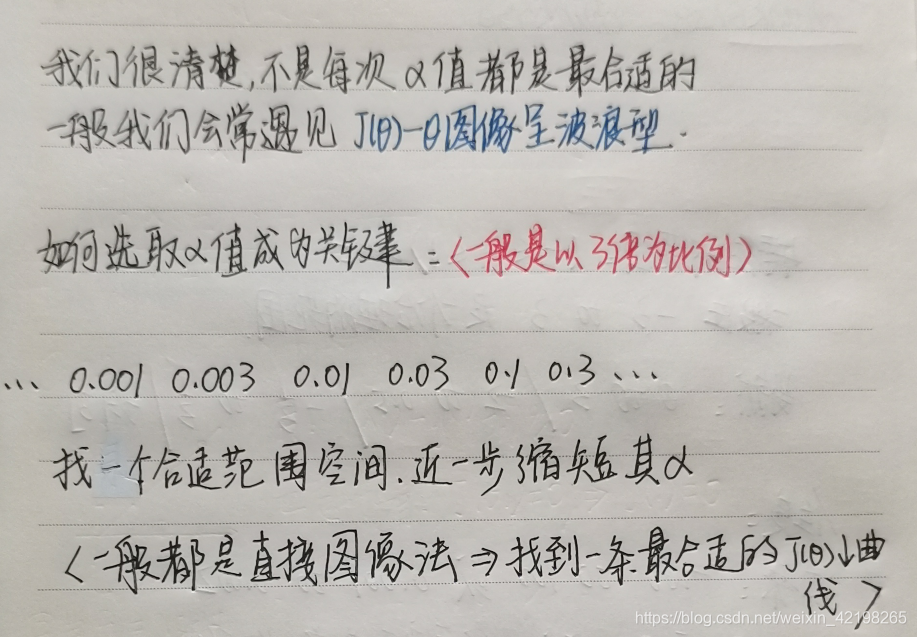 我们很清楚,不是每次α值都是最合适的
一般我们会常遇见 J(θ)-θ图像呈波浪型.
如何选取α值成为关键 = <一般是以3倍为比例>
... 0.001 0.003 0.01 0.03 0.1 0.3 ...
找一个合适范围空间.近一步缩短其α
<一般都是直接图像法⇒找到一条最合适的J(θ)↓曲
线>
https://blog.csdn.net/weixin_42198265